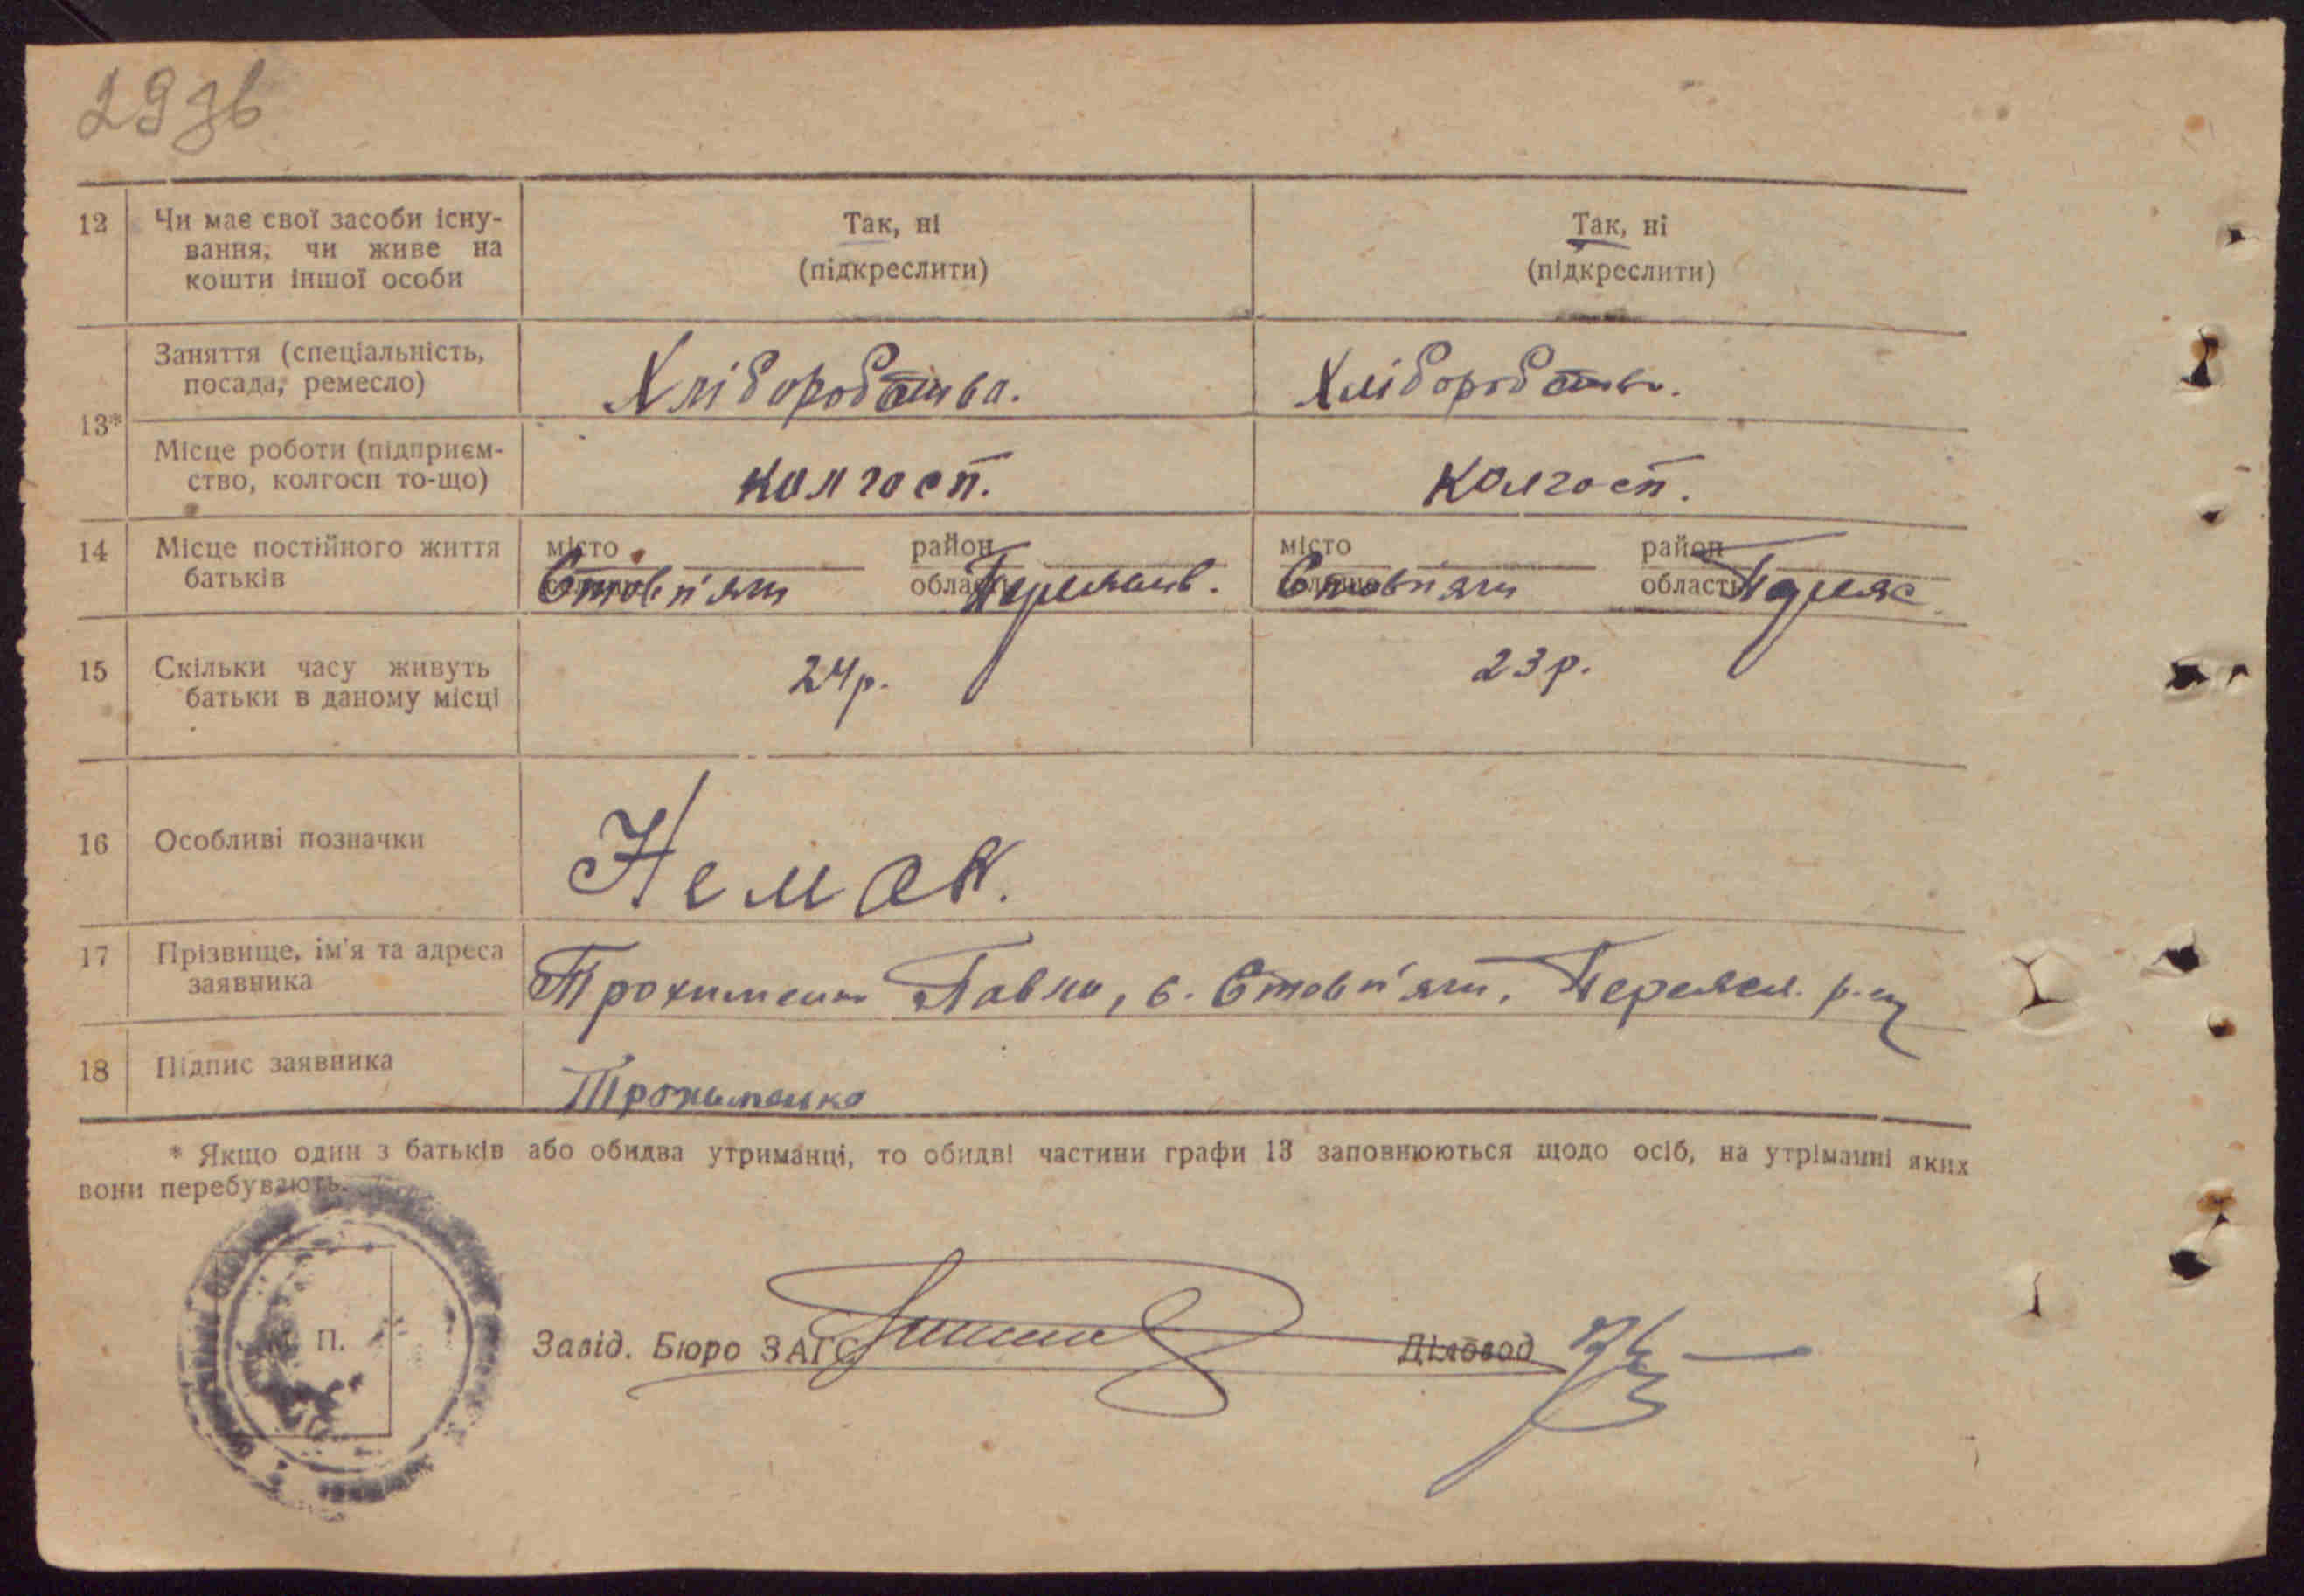 29зв
12 Чи має свої засоби існу-
вання, чи живе на
кошти іншої особи
Так, ні
(підкреслити)
Так, ні
(підкреслити)
13*
Заняття (спеціальність,
посада, ремесло)
Хліборобство.
Хліборобство.
Місце роботи (підприєм-
ство, колгосп то-що)
колгосп.
колгосп.
14 Місце постійного життя
батьків
місто район
Стовп'яги област Переяслв.
місто район
Стовп'яги област Переяс
15 Скільки часу живуть
батьки в даному місці
24р.
23р.
16 Особливі позначки
Немає.
17 Прізвище, ім'я та адреса
заявника
Трохименко Павло, с. Стовп'яги, Переясл. р-ну
18 Підпис заявника
Трохименко
* Якщо один з батьків або обидва утриманці, то обидві частини графи 13 заповнюються щодо осіб, на утріманні яких
вони перебувають.
П.
Завід. Бюро ЗАГС
Діловод